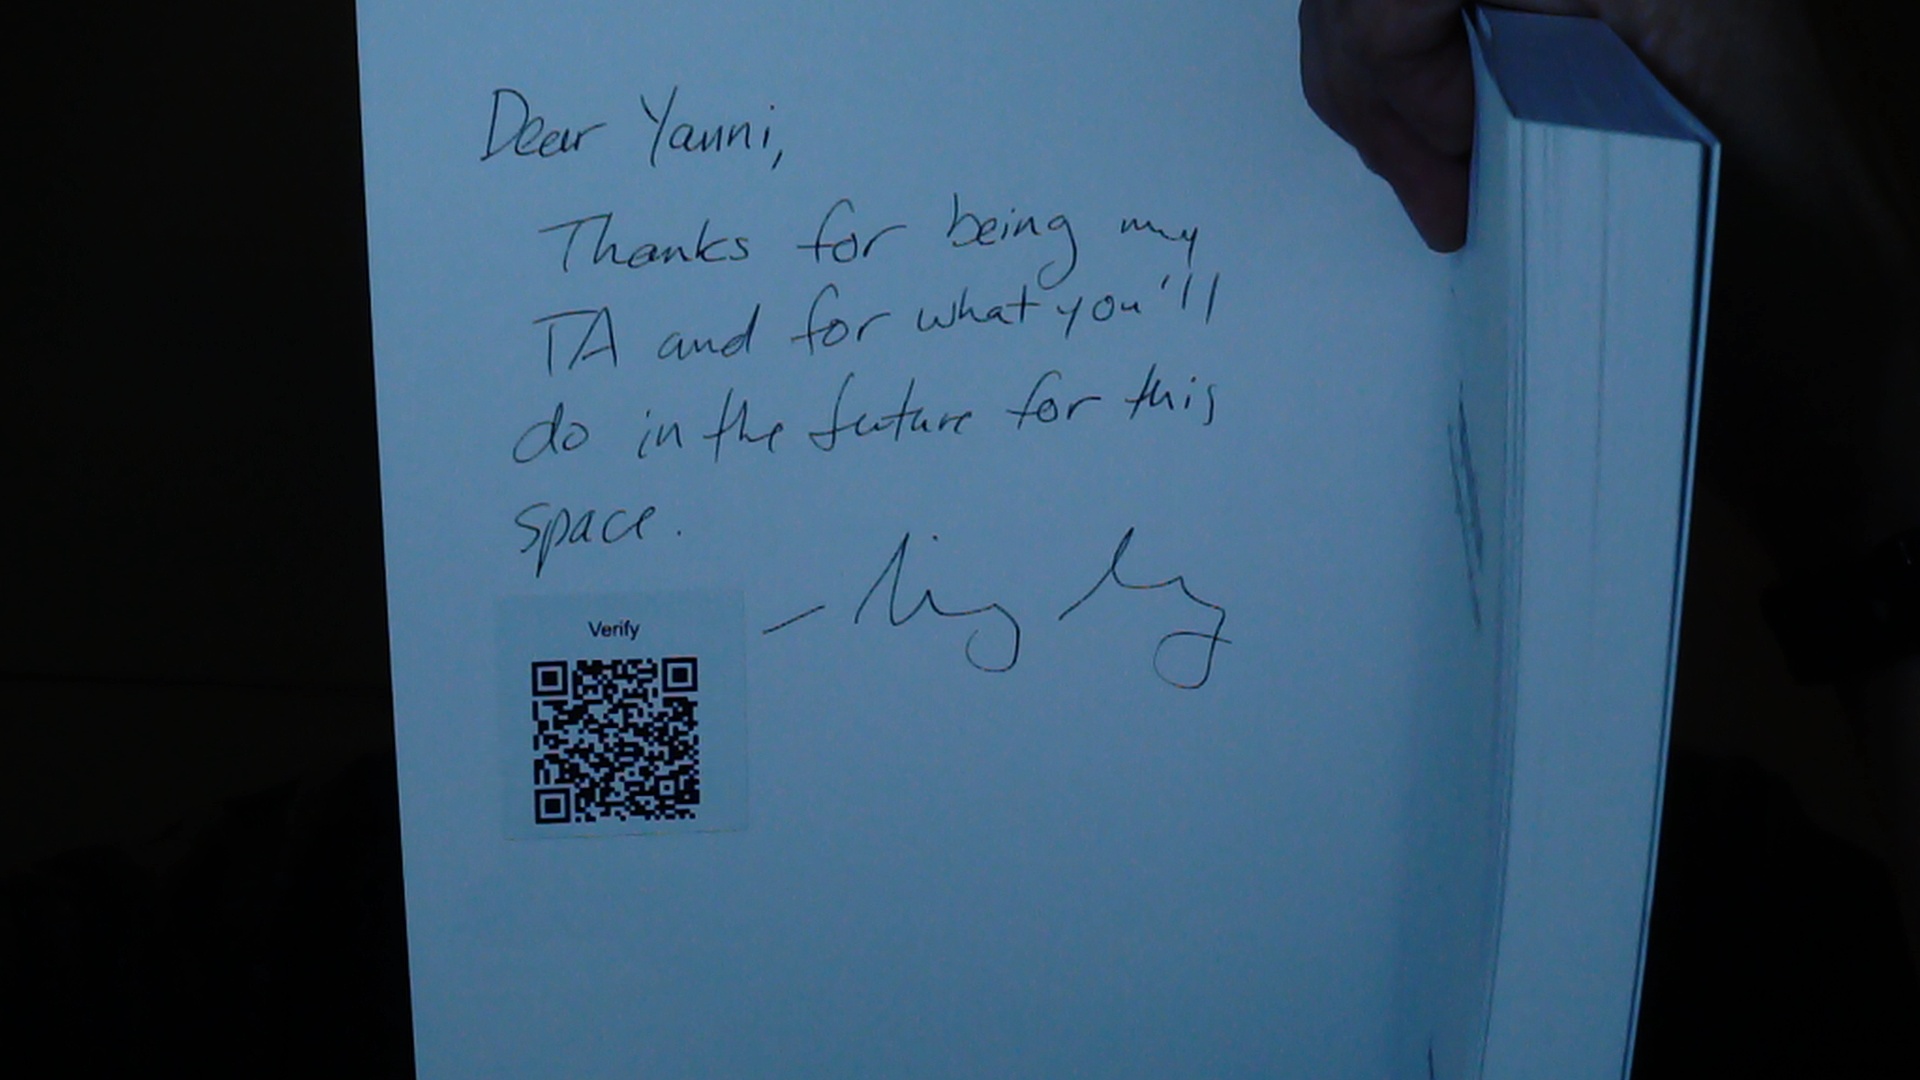 Dear Yanni,
Thanks for being my
TA and for what you'll
do in the future for this
space.
Verify